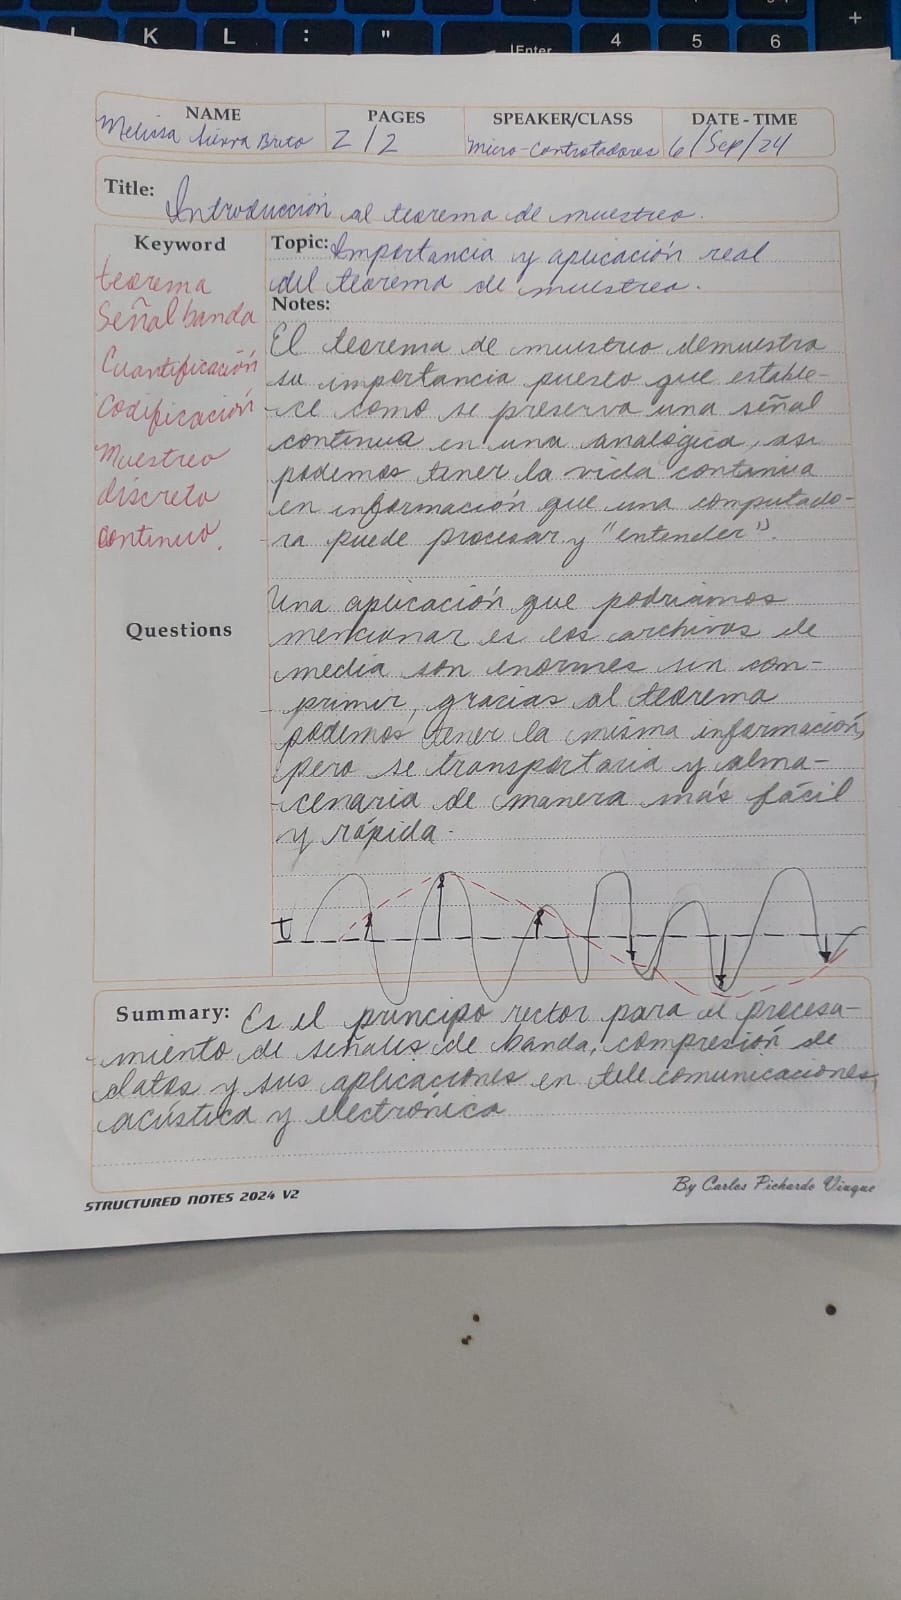 K L : " Enter 4 5 6 +
NAME PAGES SPEAKER/CLASS DATE - TIME
Melissa Sierra Brito 2/2 Micro-Controtadores 6/Sep/24
Title: Introducción al teorema de muestreo.
Keyword
teorema
Señal banda
Cuantificación
Codificación
Muestreo
discreto
continuo.
Questions
Topic: Importancia y aplicación real
del teorema de muestreo.
Notes:
El teorema de muestreo demuestra
su importancia puesto que estable-
ce como se preserva una señal
continua en una analógica, asi
podemos tener la vida continua
en información que una computado-
ra puede procesar y "entender".
Una aplicación que podriamos
mencionar es los archivos de
media son enormes sin com-
primir, gracias al teorema
podemos tener la misma información,
pero se transportaria y alma-
cenaria de manera más fácil
y rápida.
t
Summary: Es el principo rector para el procesa-
miento de señales de banda, compresión de
datos y sus aplicaciones en telecomunicaciones,
acústica y electrónica
STRUCTURED NOTES 2024 V2
By Carlos Pichardo Viuque